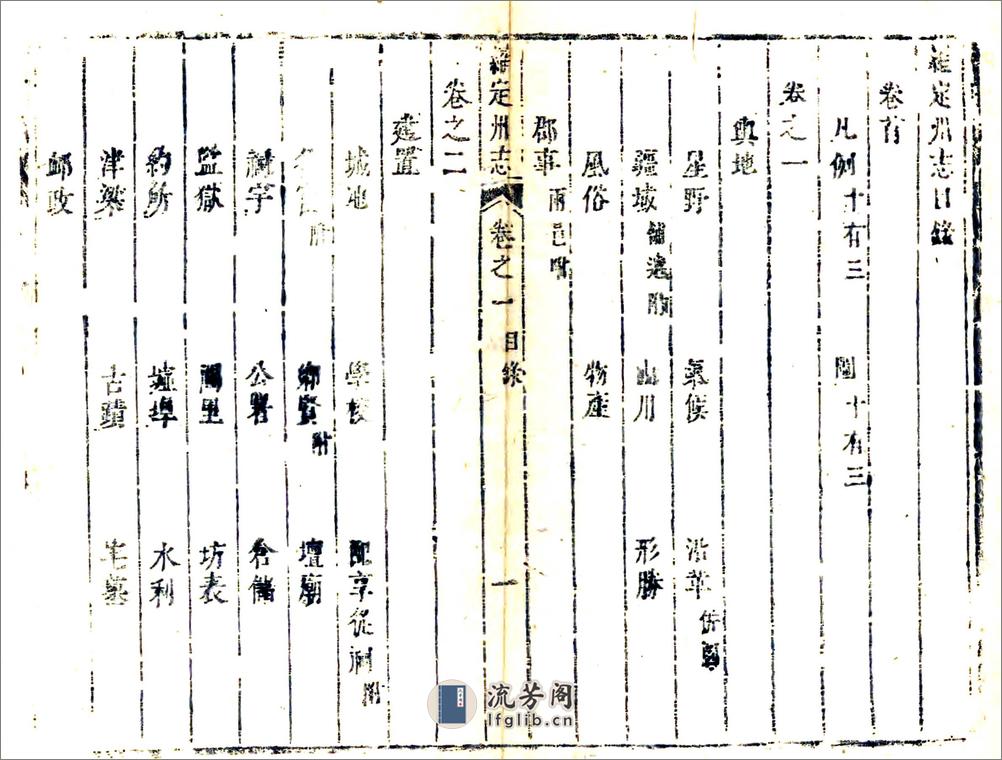 羅定州志目錄
卷首
凡例十有三 圖十有三
卷之一
輿地
星野 氣候 沿革
疆域 山川 形勝
風俗 物產
郡事兩邑附
羅定州志 卷之一 目錄 一
卷之二
建置
城池 學校 配享從祠附
附 鄉賢附 壇廟
祠宇 公署 倉儲
監獄 閭里 坊表
約所 墟埠 水利
津梁 古蹟 宅墓
郵政
流芳阁
lfglib.cn